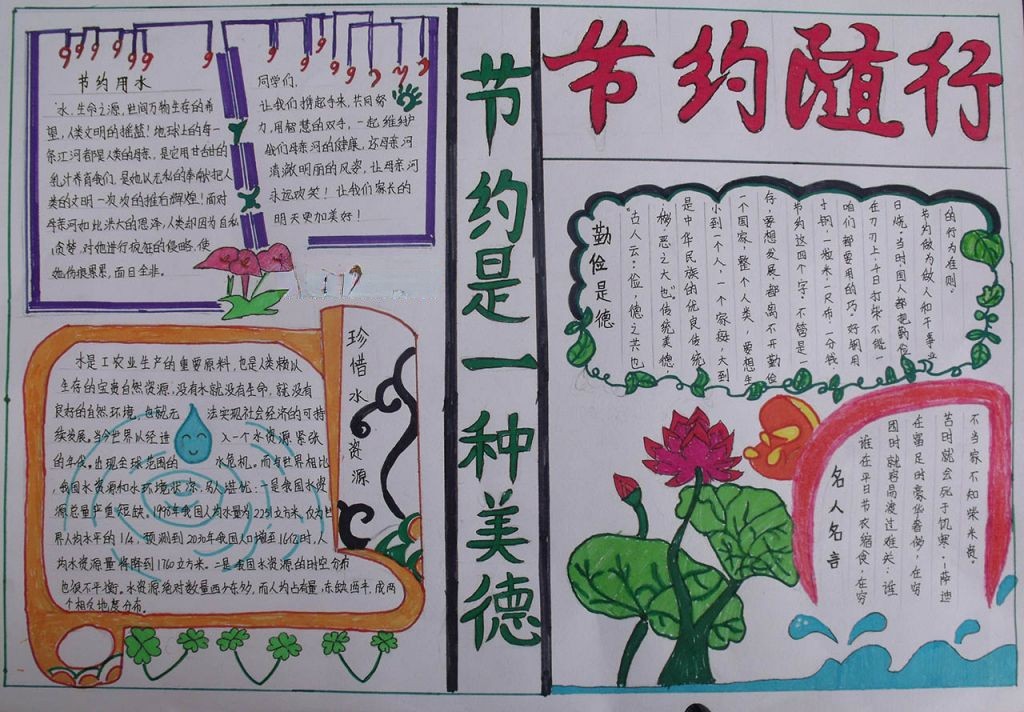 节约随行
节约是一种美德
节约用水
水,生命之源,世间万物生存的希
望,人类文明的摇篮!地球上的每一
条江河都是人类的母亲,是它用甘甜的
乳汁养育我们,是他以无私的奉献把人
类的文明一次次的推向辉煌!面对
母亲河如此洪大的恩泽,人类却因为自私
贪婪,对他进行疯狂的侵略,使
她伤痕累累,面目全非。
同学们,
让我们携起手来,共同努
力,用智慧的双手,一起维护
我们母亲河的健康,还母亲河
清澈明丽的风姿,让母亲河
永远欢笑!让我们家长的
明天更加美好!
珍惜水资源
水是工农业生产的重要原料,也是人类赖以
生存的宝贵自然资源,没有水就没有生命,就没有
良好的自然环境,也就无法实现社会经济的可持
续发展。当今世界以经进入一个水资源紧张
的年代。出现全球范围的水危机。而与世界相比
我国水资源和水环境状况,另人堪忧:一是我国水资
源总量严重短缺。1998年我国人均水量为2251立方米,仅为世
界人均水平的1/4。预测到2030年我国人口增至16亿时,人
均水资源量将降到1760立方米。二是我国水资源的时空分布
也很不平衡。水资源绝对数量西少东多,而人均占有量,东缺西丰,成两
个相反地度分布。
勤俭是德
“古人云:俭,德之共也
侈,恶之大也”。传统美德
是中华民族的优良传统
小到一个人,一个家庭,大到
一个国家,整个人类,要想生
存,要想发展,都离不开勤俭
节约这四个字。不管是一
寸钢,一粒米,一尺布,一分钱,
咱们都要用的巧,好钢用
在刀刃上,千日打柴不能一
日烧。当时,国人都把勤俭
节约做为做人和干事业
的行为准则。
名人名言
不当家不知柴米贵。
苦时就会死于饥寒。——萨迪
在富足时豪华奢侈,在穷
困时就容易渡过难关;谁
谁在平日节衣缩食,在穷